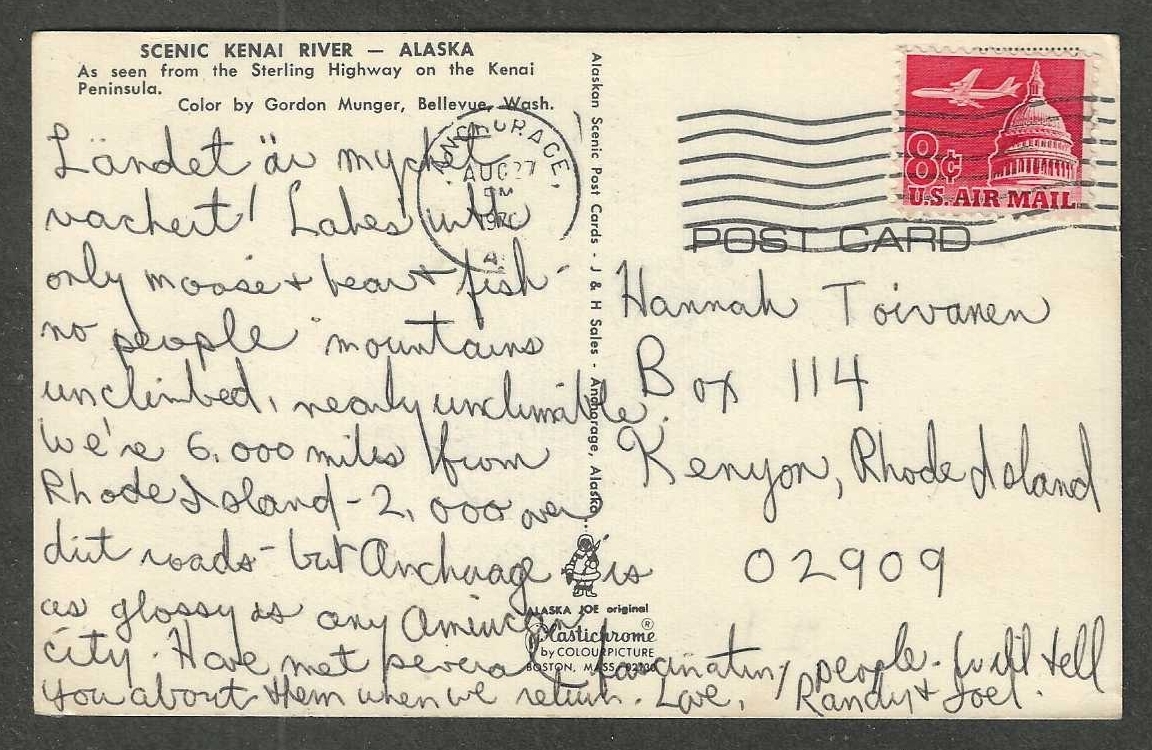 SCENIC KENAI RIVER — ALASKA
As seen from the Sterling Highway on the Kenai
Peninsula.
Color by Gordon Munger, Bellevue, Wash.
Ländet är mycket
vackert! Lakes with
only moose + bear + fish -
no people mountains
unclimbed, nearly unclimable.
We're 6,000 miles from
Rhode Island - 2,000 over
dirt roads - but Anchorage is
as glossy as any American
city. Have met several fascinating people. Will tell
you about them when we return. Love, Randy + Joel.
Alaskan Scenic Post Cards - J & H Sales - Anchorage, Alaska
ALASKA JOE original
Plastichrome ®
by COLOURPICTURE
BOSTON, MASS. 02130
ANCHORAGE,
AUG 27
PM
1970
A
8¢
U.S. AIR MAIL
POST CARD
Hannah Toivanen
Box 114
Kenyon, Rhode Island
02909